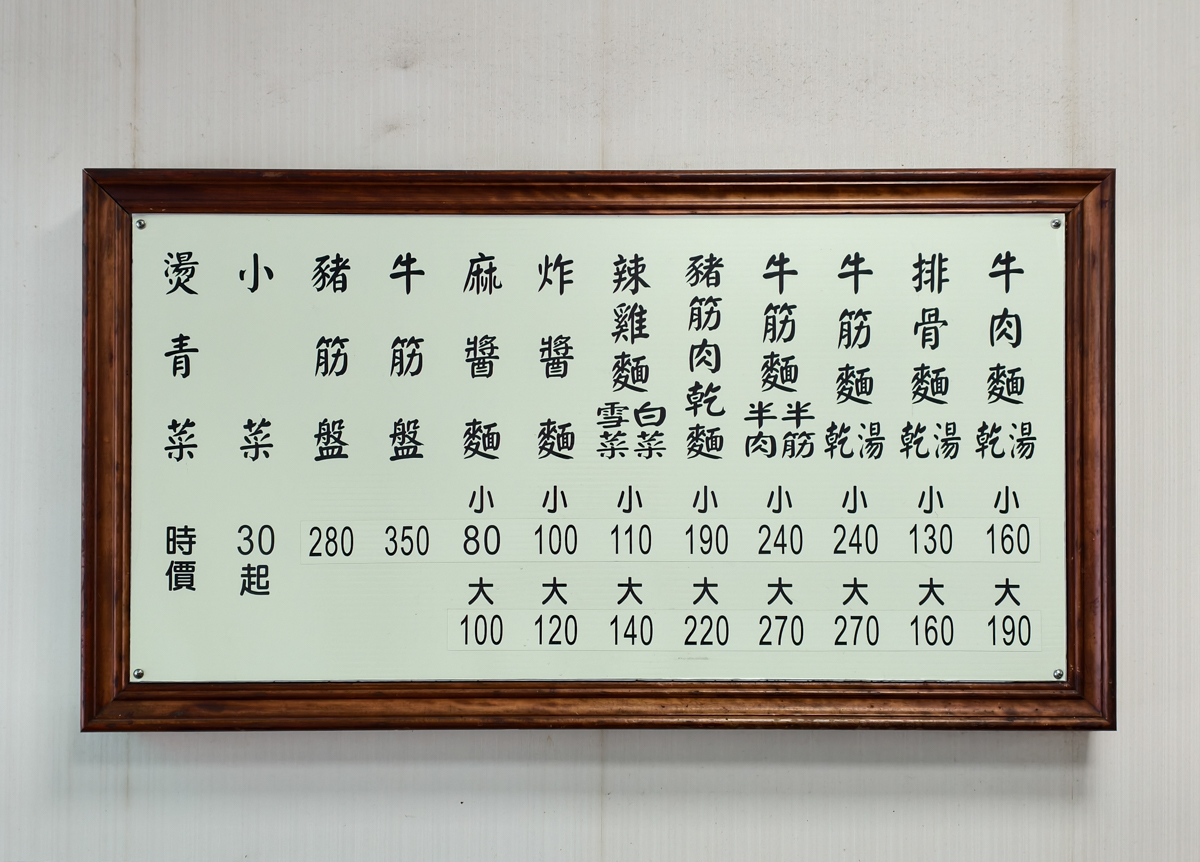 牛肉麵 乾湯 小 160 大 190
排骨麵 乾湯 小 130 大 160
牛筋麵 乾湯 小 240 大 270
牛筋麵 半肉半筋 小 240 大 270
豬筋肉乾麵 小 190 大 220
辣雞麵 雪菜白菜 小 110 大 140
炸醬麵 小 100 大 120
麻醬麵 小 80 大 100
牛筋盤 350
豬筋盤 280
小菜 30起
燙青菜 時價